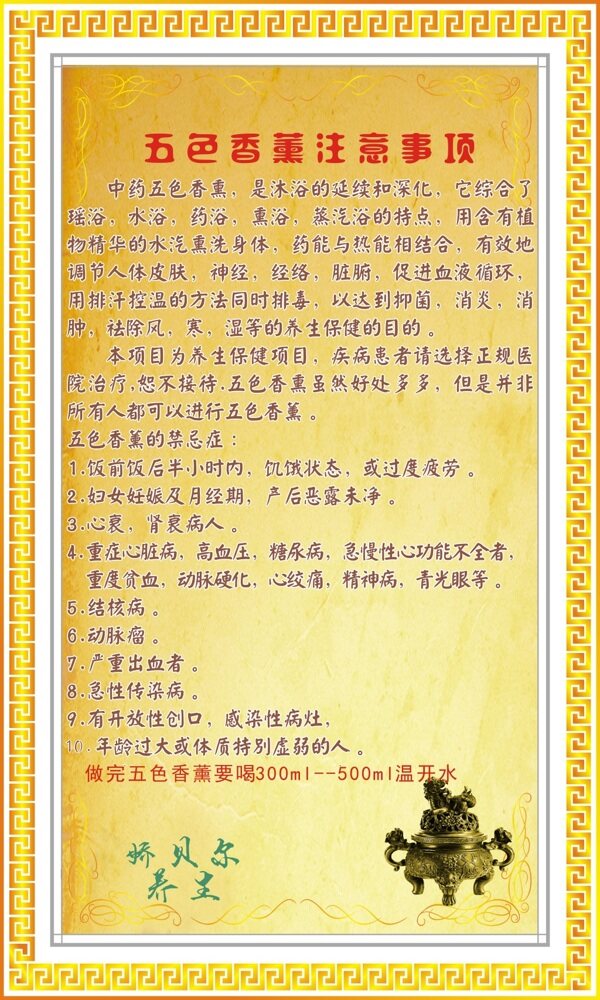 五色香薰注意事项
中药五色香熏，是沐浴的延续和深化，它综合了
瑶浴，水浴，药浴，熏浴，蒸汽浴的特点，用含有植
物精华的水汽熏洗身体，药能与热能相结合，有效地
调节人体皮肤，神经，经络，脏腑，促进血液循环，
用排汗控温的方法同时排毒，以达到抑菌，消炎，消
肿，祛除风，寒，湿等的养生保健的目的。
本项目为养生保健项目，疾病患者请选择正规医
院治疗,恕不接待.五色香熏虽然好处多多，但是并非
所有人都可以进行五色香薰。
五色香薰的禁忌症：
1.饭前饭后半小时内，饥饿状态，或过度疲劳。
2.妇女妊娠及月经期，产后恶露未净。
3.心衰，肾衰病人。
4.重症心脏病，高血压，糖尿病，急慢性心功能不全者，
重度贫血，动脉硬化，心绞痛，精神病，青光眼等。
5.结核病。
6.动脉瘤。
7.严重出血者。
8.急性传染病。
9.有开放性创口，感染性病灶，
10.年龄过大或体质特别虚弱的人。
做完五色香薰要喝300ml--500ml温开水
娇贝尔
养生